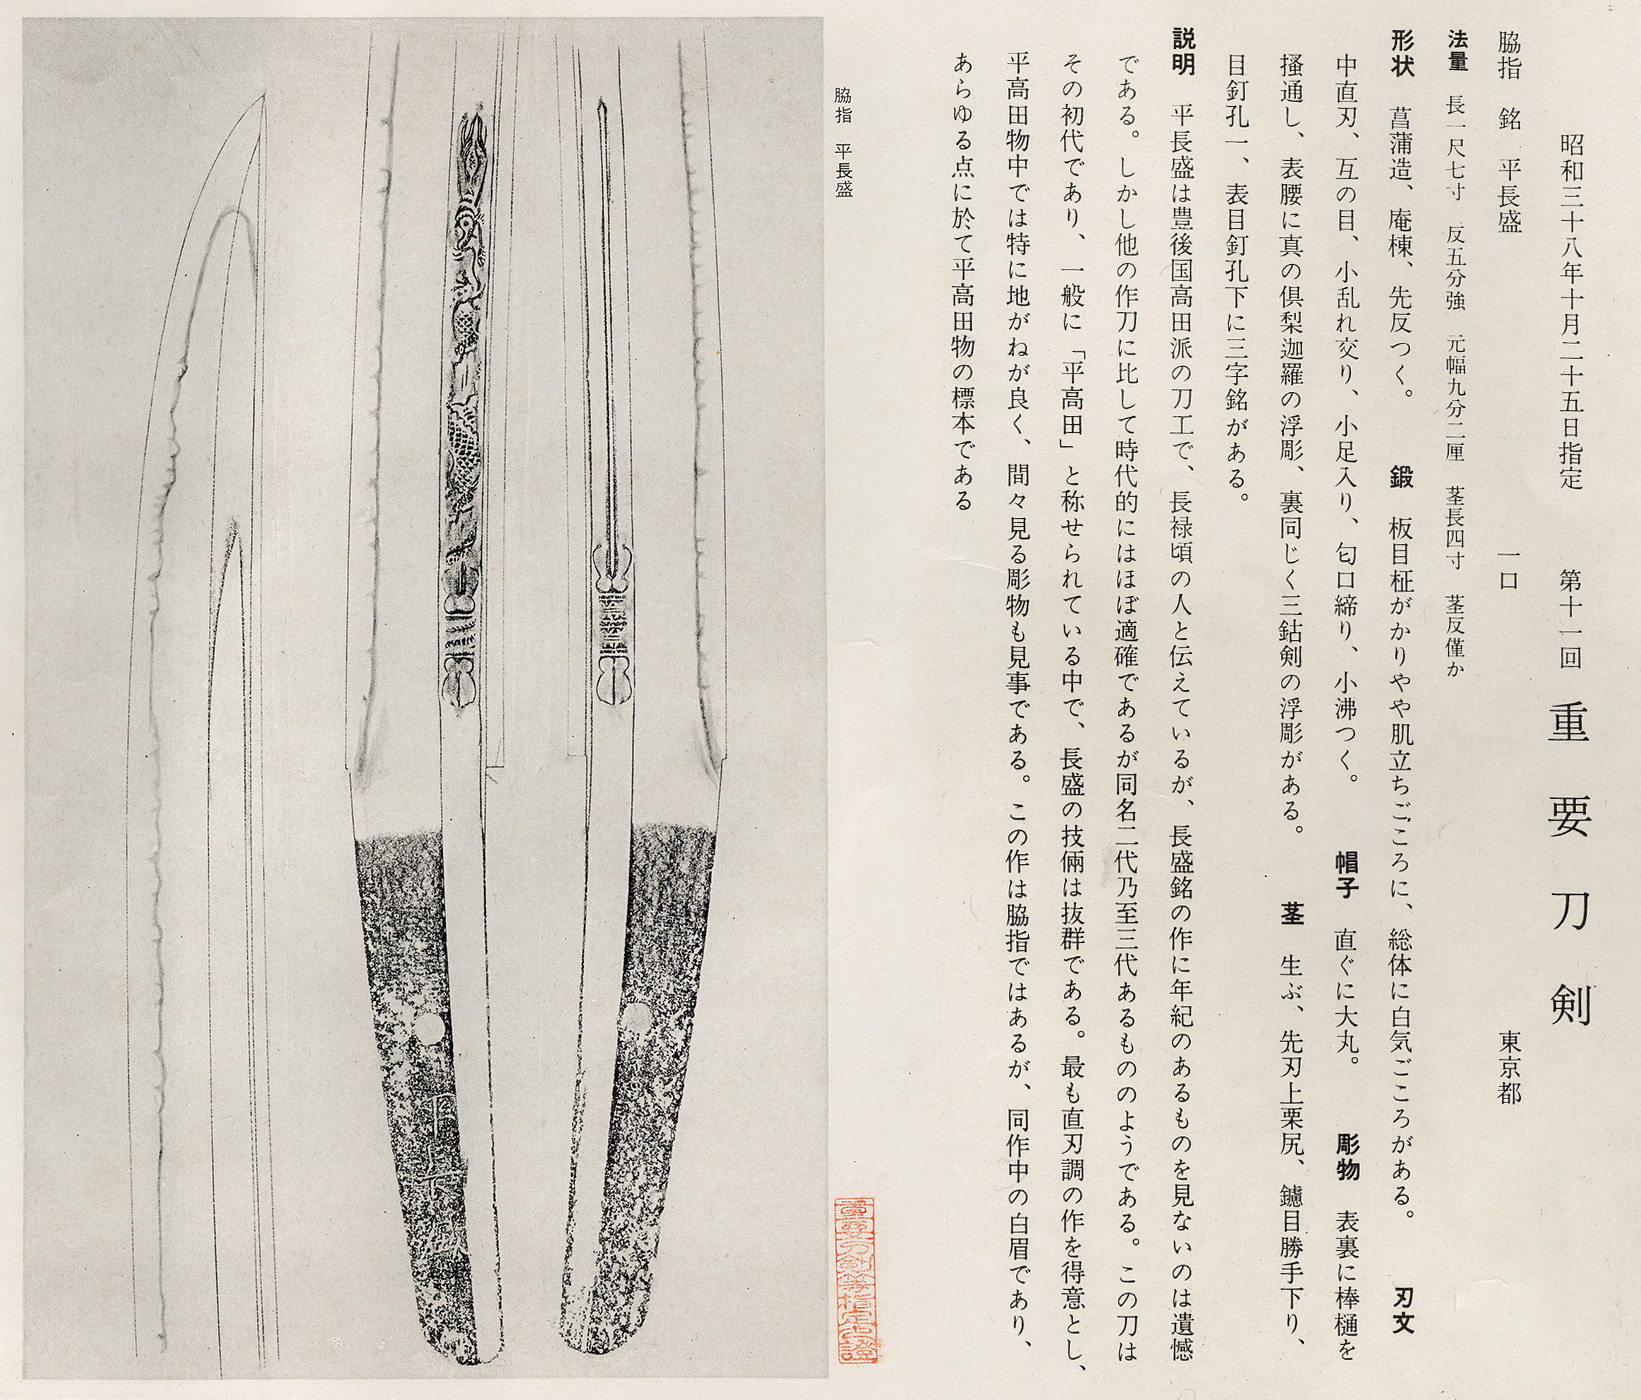 昭和三十八年十月二十五日指定　第十一回 重要刀剣
脇指　銘　平長盛　一口　東京都
法量　長一尺七寸　反五分強　元幅九分二厘　茎長四寸　茎反僅か
形状　菖蒲造、庵棟、先反つく。　鍛　板目柾がかりやや肌立ちごころに、総体に白気ごころがある。　刃文
中直刃、互の目、小乱れ交り、小足入り、匂口締り、小沸つく。　帽子　直ぐに大丸。　彫物　表裏に棒樋を
掻通し、表腰に真の倶梨迦羅の浮彫、裏同じく三鈷剣の浮彫がある。　茎　生ぶ、先刃上栗尻、鑢目勝手下り、
目釘孔一、表目釘孔下に三字銘がある。
説明　平長盛は豊後国高田派の刀工で、長禄頃の人と伝えているが、長盛銘の作に年紀のあるものを見ないのは遺憾
である。しかし他の作刀に比して時代的にはほぼ適確であるが同名二代乃至三代あるもののようである。この刀は
その初代であり、一般に「平高田」と称せられている中で、長盛の技倆は抜群である。最も直刃調の作を得意とし、
平高田物中では特に地がねが良く、間々見る彫物も見事である。この作は脇指ではあるが、同作中の白眉であり、
あらゆる点に於て平高田物の標本である
脇指　平長盛
重要刀剣等指定之證
平長盛